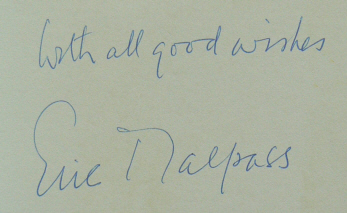 With all good wishes
Eric Malpass